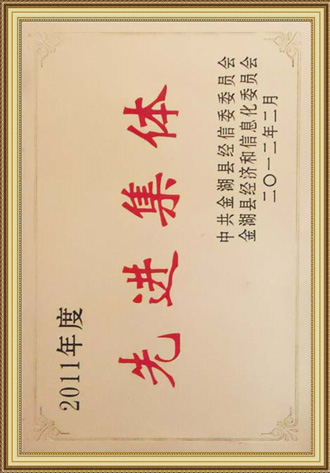 2011年度
先进集体
中共金湖县经信委委员会
金湖县经济和信息化委员会
二〇一二年二月